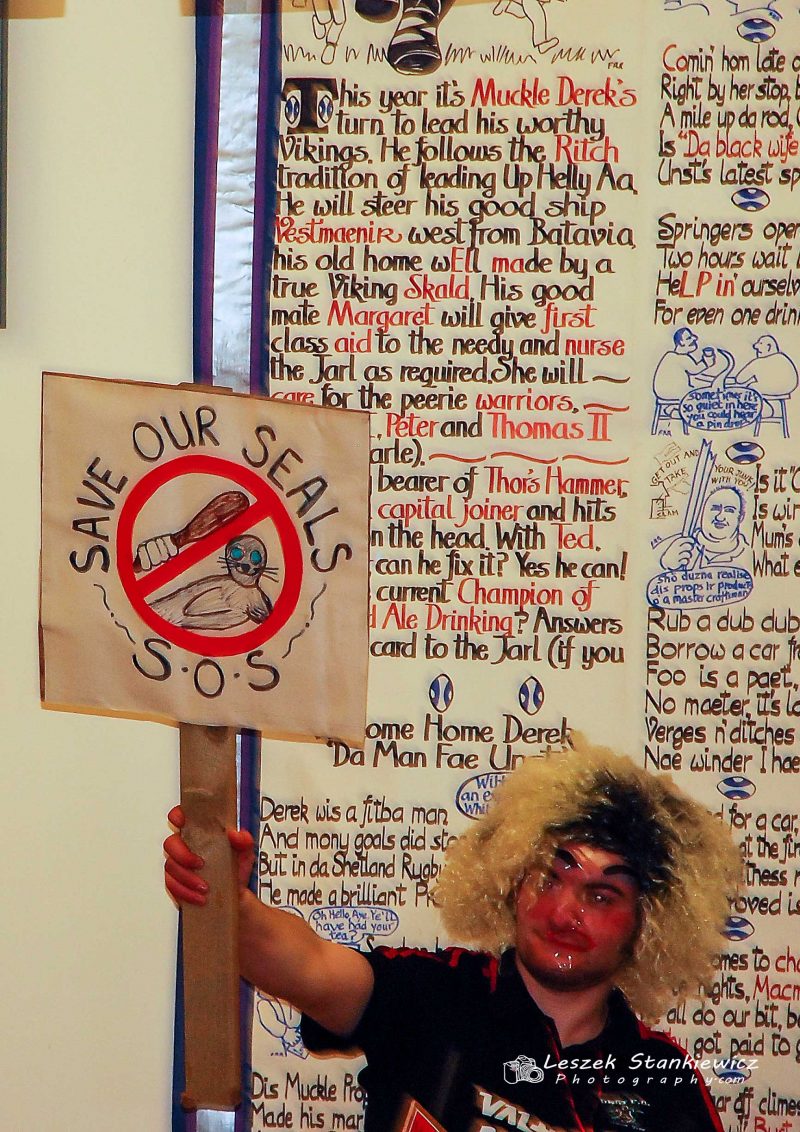 This year it's Muckle Derek's
turn to lead his worthy
Vikings. He follows the Ritch
tradition of leading Up Helly Aa,
He will steer his good ship
Vestmaenir west from Batavia,
his old home wEll made by a
true Viking Skald. His good
mate Margaret will give first
class aid to the needy and nurse
the Jarl as required. She will
care for the peerie warriors,
, Peter and Thomas II
arle).
bearer of Thor's Hammer,
capital joiner and hits
n the head. With Ted,
can he fix it? Yes he can!
current Champion of
d Ale Drinking? Answers
card to the Jarl (if you
ome Home Derek
'Da Man Fae
Derek wis a fitba man
And mony goals did
But in da Shetland Rugby
He made a brilliant
Oh Hello, Aye. Ye'll
have had your
tea?
Dis Muckle
Made his
Comin' hom late
Right by her stop,
A mile up da rod,
Is "Da black wife
Unst's latest
Springers
Two hours wait
HeLP in'
For even one
Sometimes it's
so quiet in here
you could hear
a pin drop
GET OUT AND
TAKE
YOUR JUNK
WITH YOU!
Is it
Is
Mum's
What
Sho duzna realise
dis props ir
o a master craftman
Rub a dub dub
Borrow a car
Foo is a paet,
No maeter, it's
Verges n' ditches
Nae winder I
for a car,
all do our bit,
got paid to
aff climes
SAVE OUR SEALS
S.O.S
Leszek Stankiewicz
Photography.com